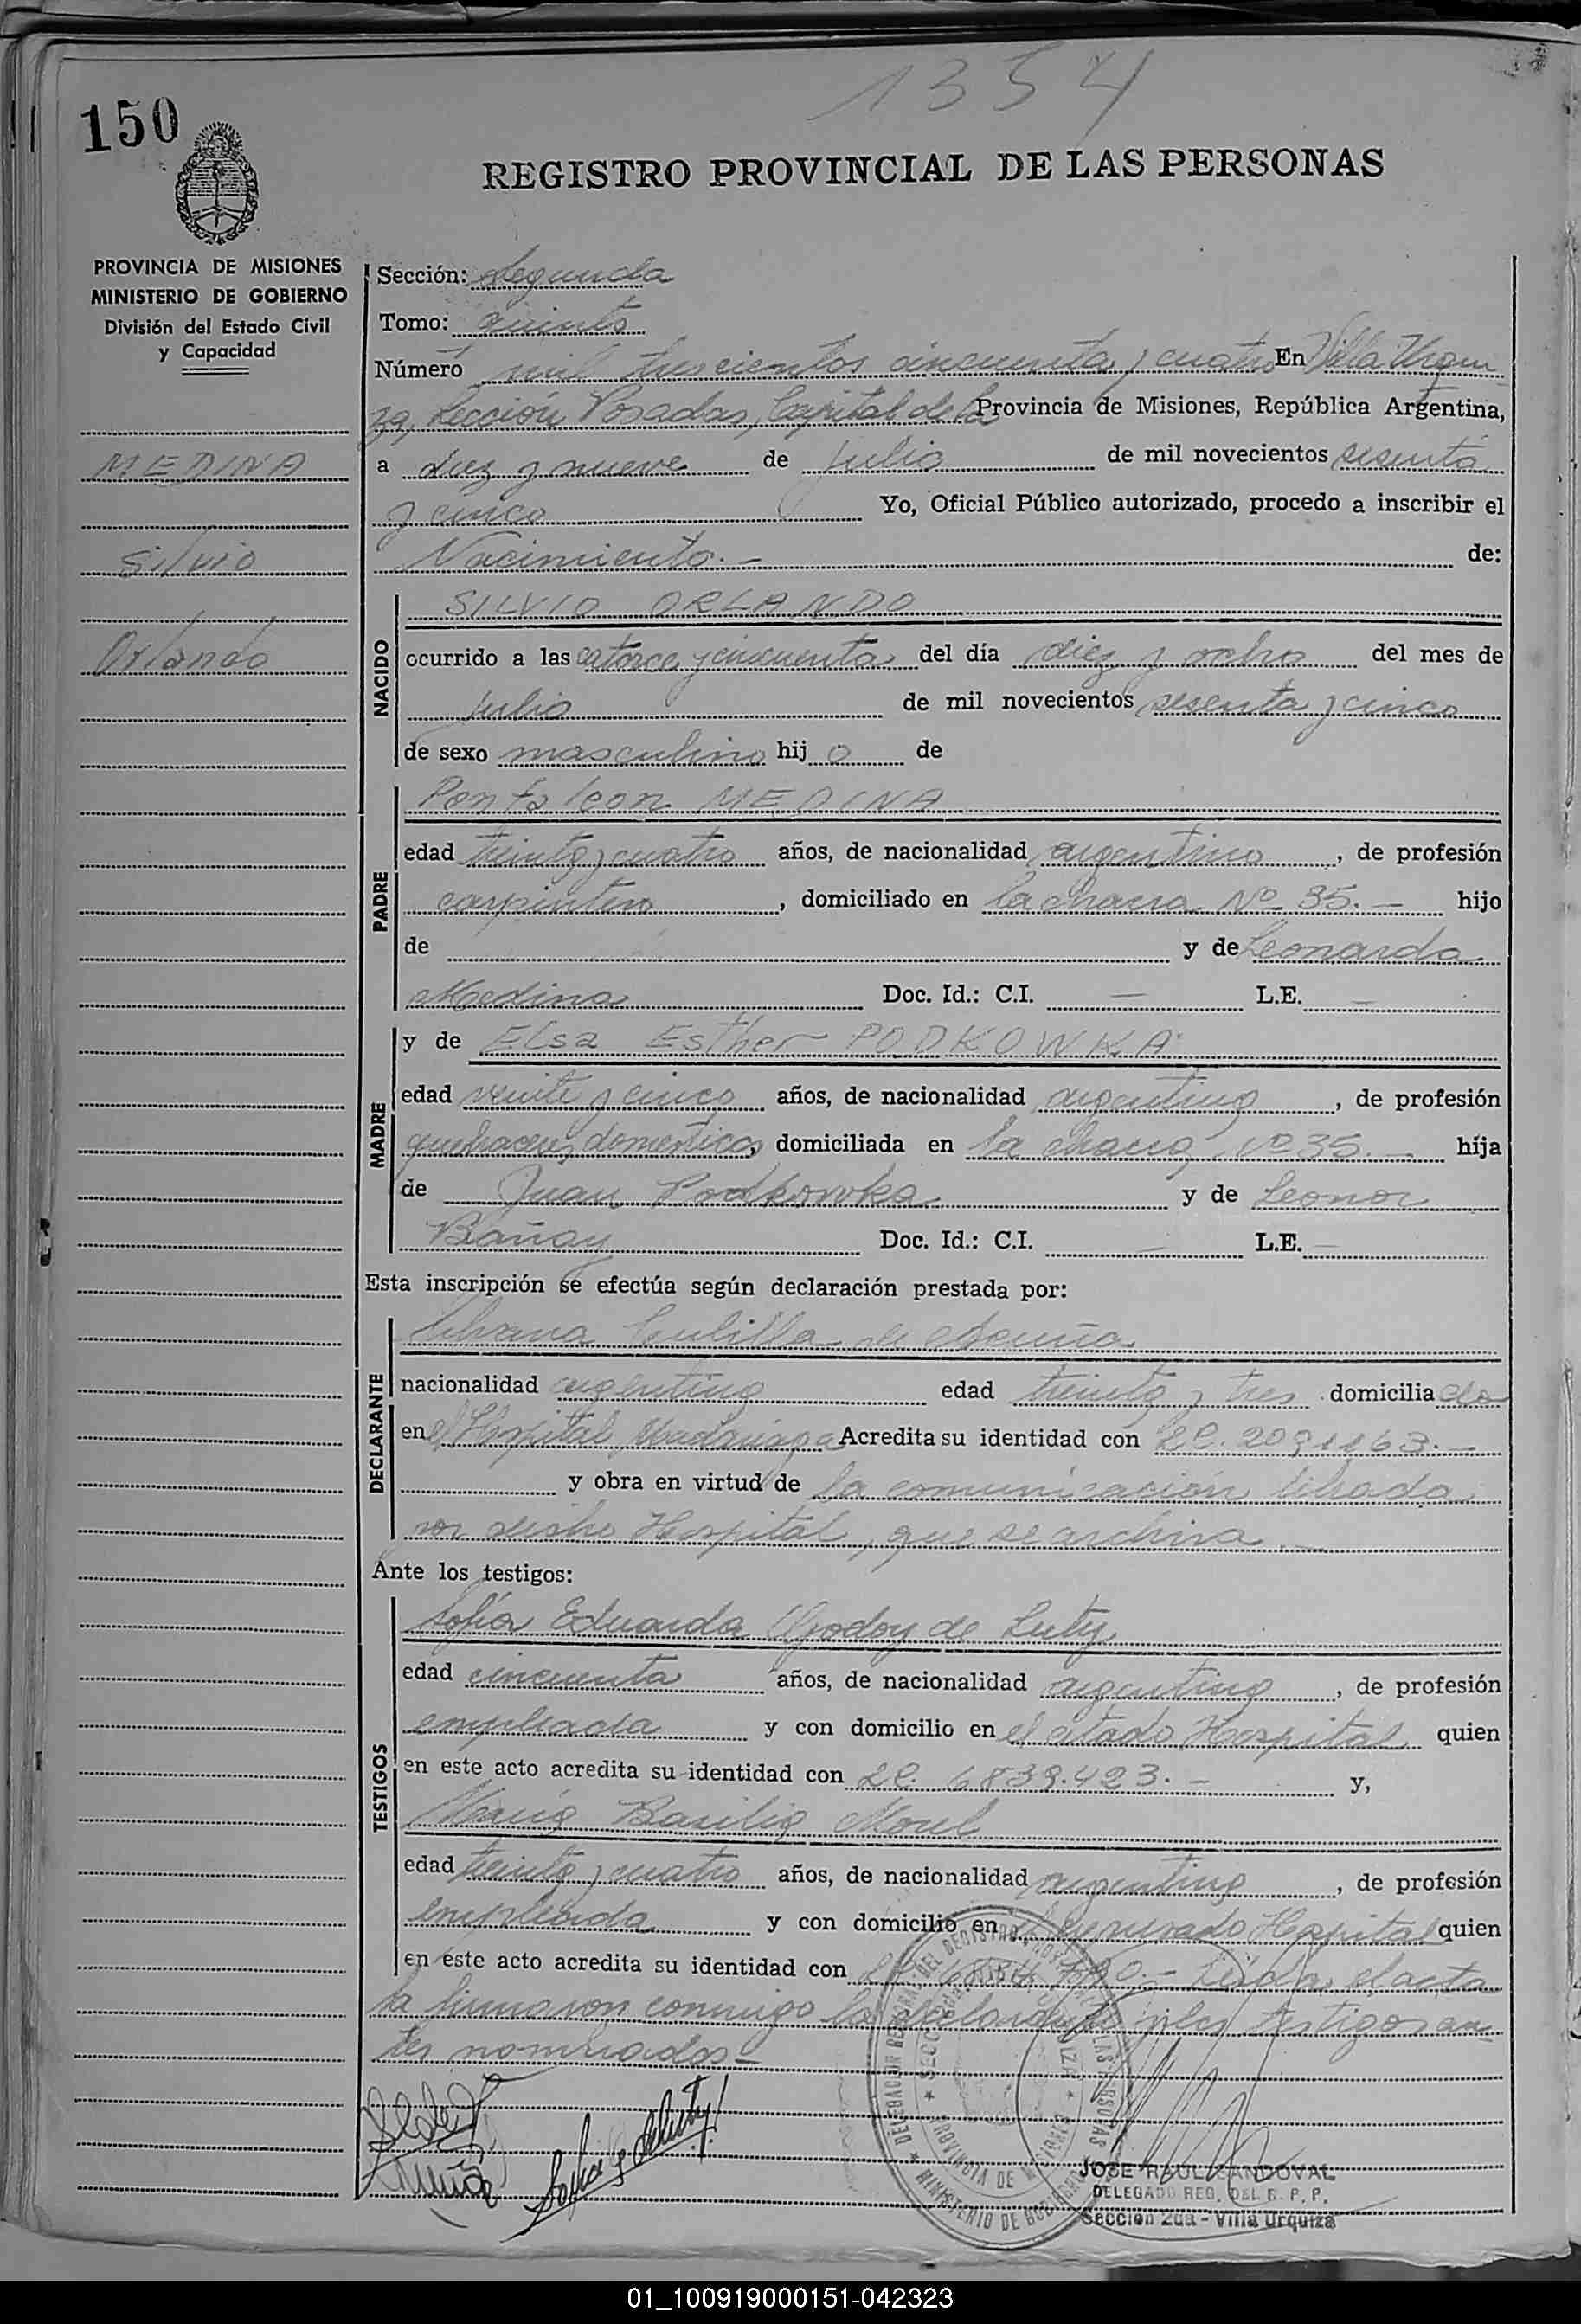 1354
150
REGISTRO PROVINCIAL DE LAS PERSONAS
PROVINCIA DE MISIONES
MINISTERIO DE GOBIERNO
División del Estado Civil
y Capacidad
MEDINA
Silvio
Orlando
Sección: Segunda
Tomo: quinto
Número mil trescientos cincuenta y cuatro En Villa Urqui
za, Sección Posadas, Capital de la Provincia de Misiones, República Argentina,
a diez y nueve de julio de mil novecientos sesenta
y cinco Yo, Oficial Público autorizado, procedo a inscribir el
Nacimiento.- de:
NACIDO
SILVIO ORLANDO
ocurrido a las catorce y cincuenta del día diez y ocho del mes de
julio de mil novecientos sesenta y cinco
de sexo masculino hij o de
PADRE
Pantaleon MEDINA
edad treinta y cuatro años, de nacionalidad argentino, de profesión
carpintero, domiciliado en la chacra Nº 35.- hijo
de y de Leonarda
Medina Doc. Id.: C.I. — L.E. —
MADRE
y de Elsa Esther PODKOWKA
edad veinte y cinco años, de nacionalidad argentina, de profesión
quehaceres domesticos, domiciliada en la chacra Nº 35.- hija
de Juan Podkowka y de Leonor
Bañay Doc. Id.: C.I. — L.E. —
Esta inscripción se efectúa según declaración prestada por:
DECLARANTE
de Acuña
nacionalidad argentina edad treinta y tres domicilia da
en el Hospital Madariaga Acredita su identidad con LC.
y obra en virtud de la comunicación librada
por dicho Hospital, que se archiva.-
Ante los testigos:
TESTIGOS
Sofía Eduarda Godoy de Luty
edad cincuenta años, de nacionalidad argentina, de profesión
empleada y con domicilio en el citado Hospital quien
en este acto acredita su identidad con LC. 6839.423.- y,
María Basilia Morel
edad treinta y cuatro años, de nacionalidad argentina, de profesión
empleada y con domicilio en Hospital quien
en este acto acredita su identidad con Leída el acta
la firmaron conmigo la declarante y los testigos an
tes nombrados-
JOSE RAUL SANDOVAL
DELEGADO REG. DEL R. P. P.
Sección 2da - Villa Urquiza
01_100919000151-042323